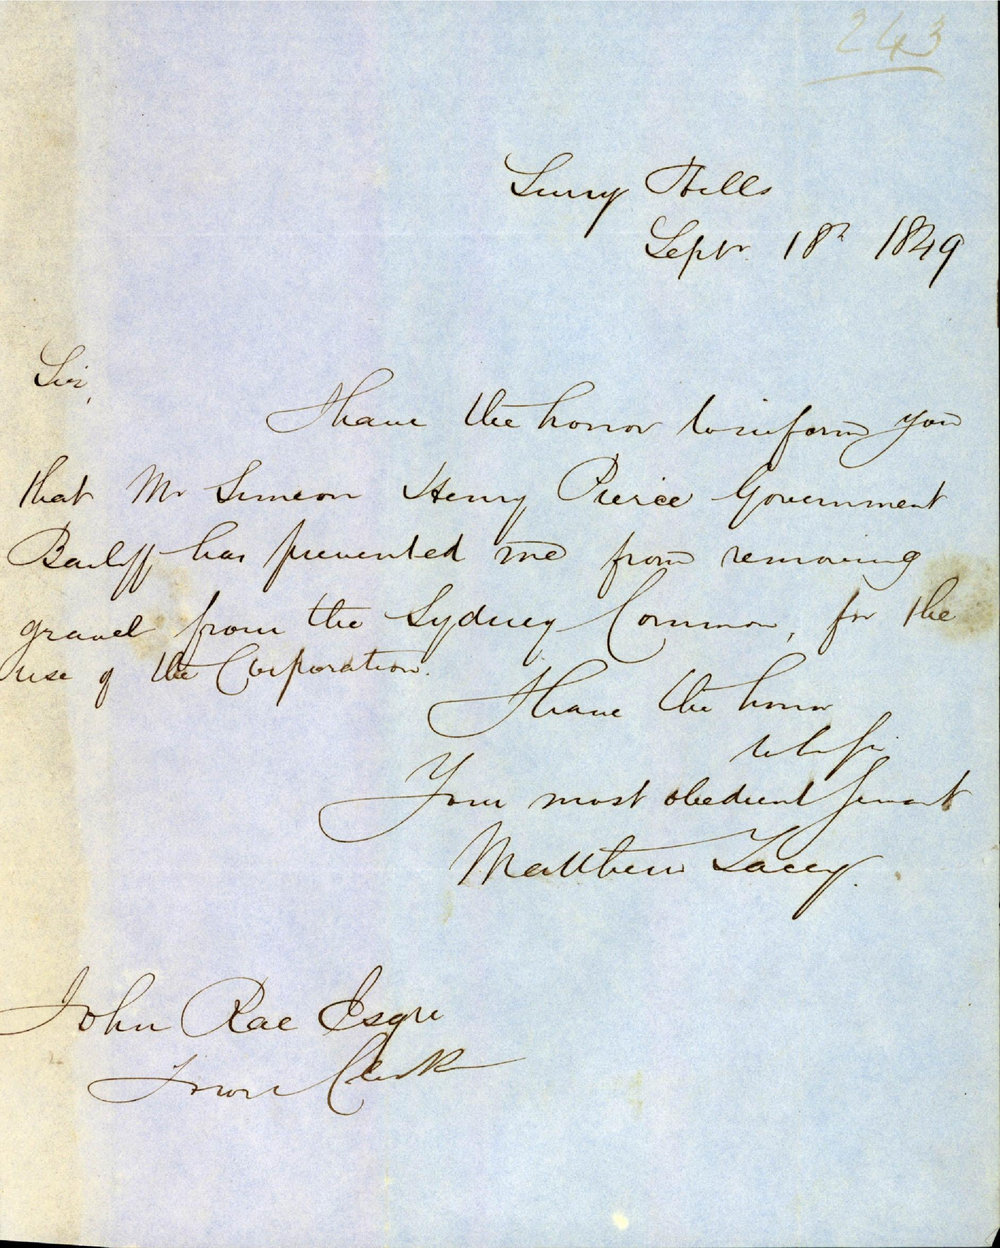 243
Surry Hills
Septr. 18th 1849
Sir,
I have the honor to inform you
that Mr Simeon Henry Pierce Government
Bailiff has prevented me from removing
gravel from the Sydney Common, for the
use of the Corporation.
I have the honor
to be Sir
Your most obedient Servant
Matthew Lacey.
John Rae Esqre
Town Clerk